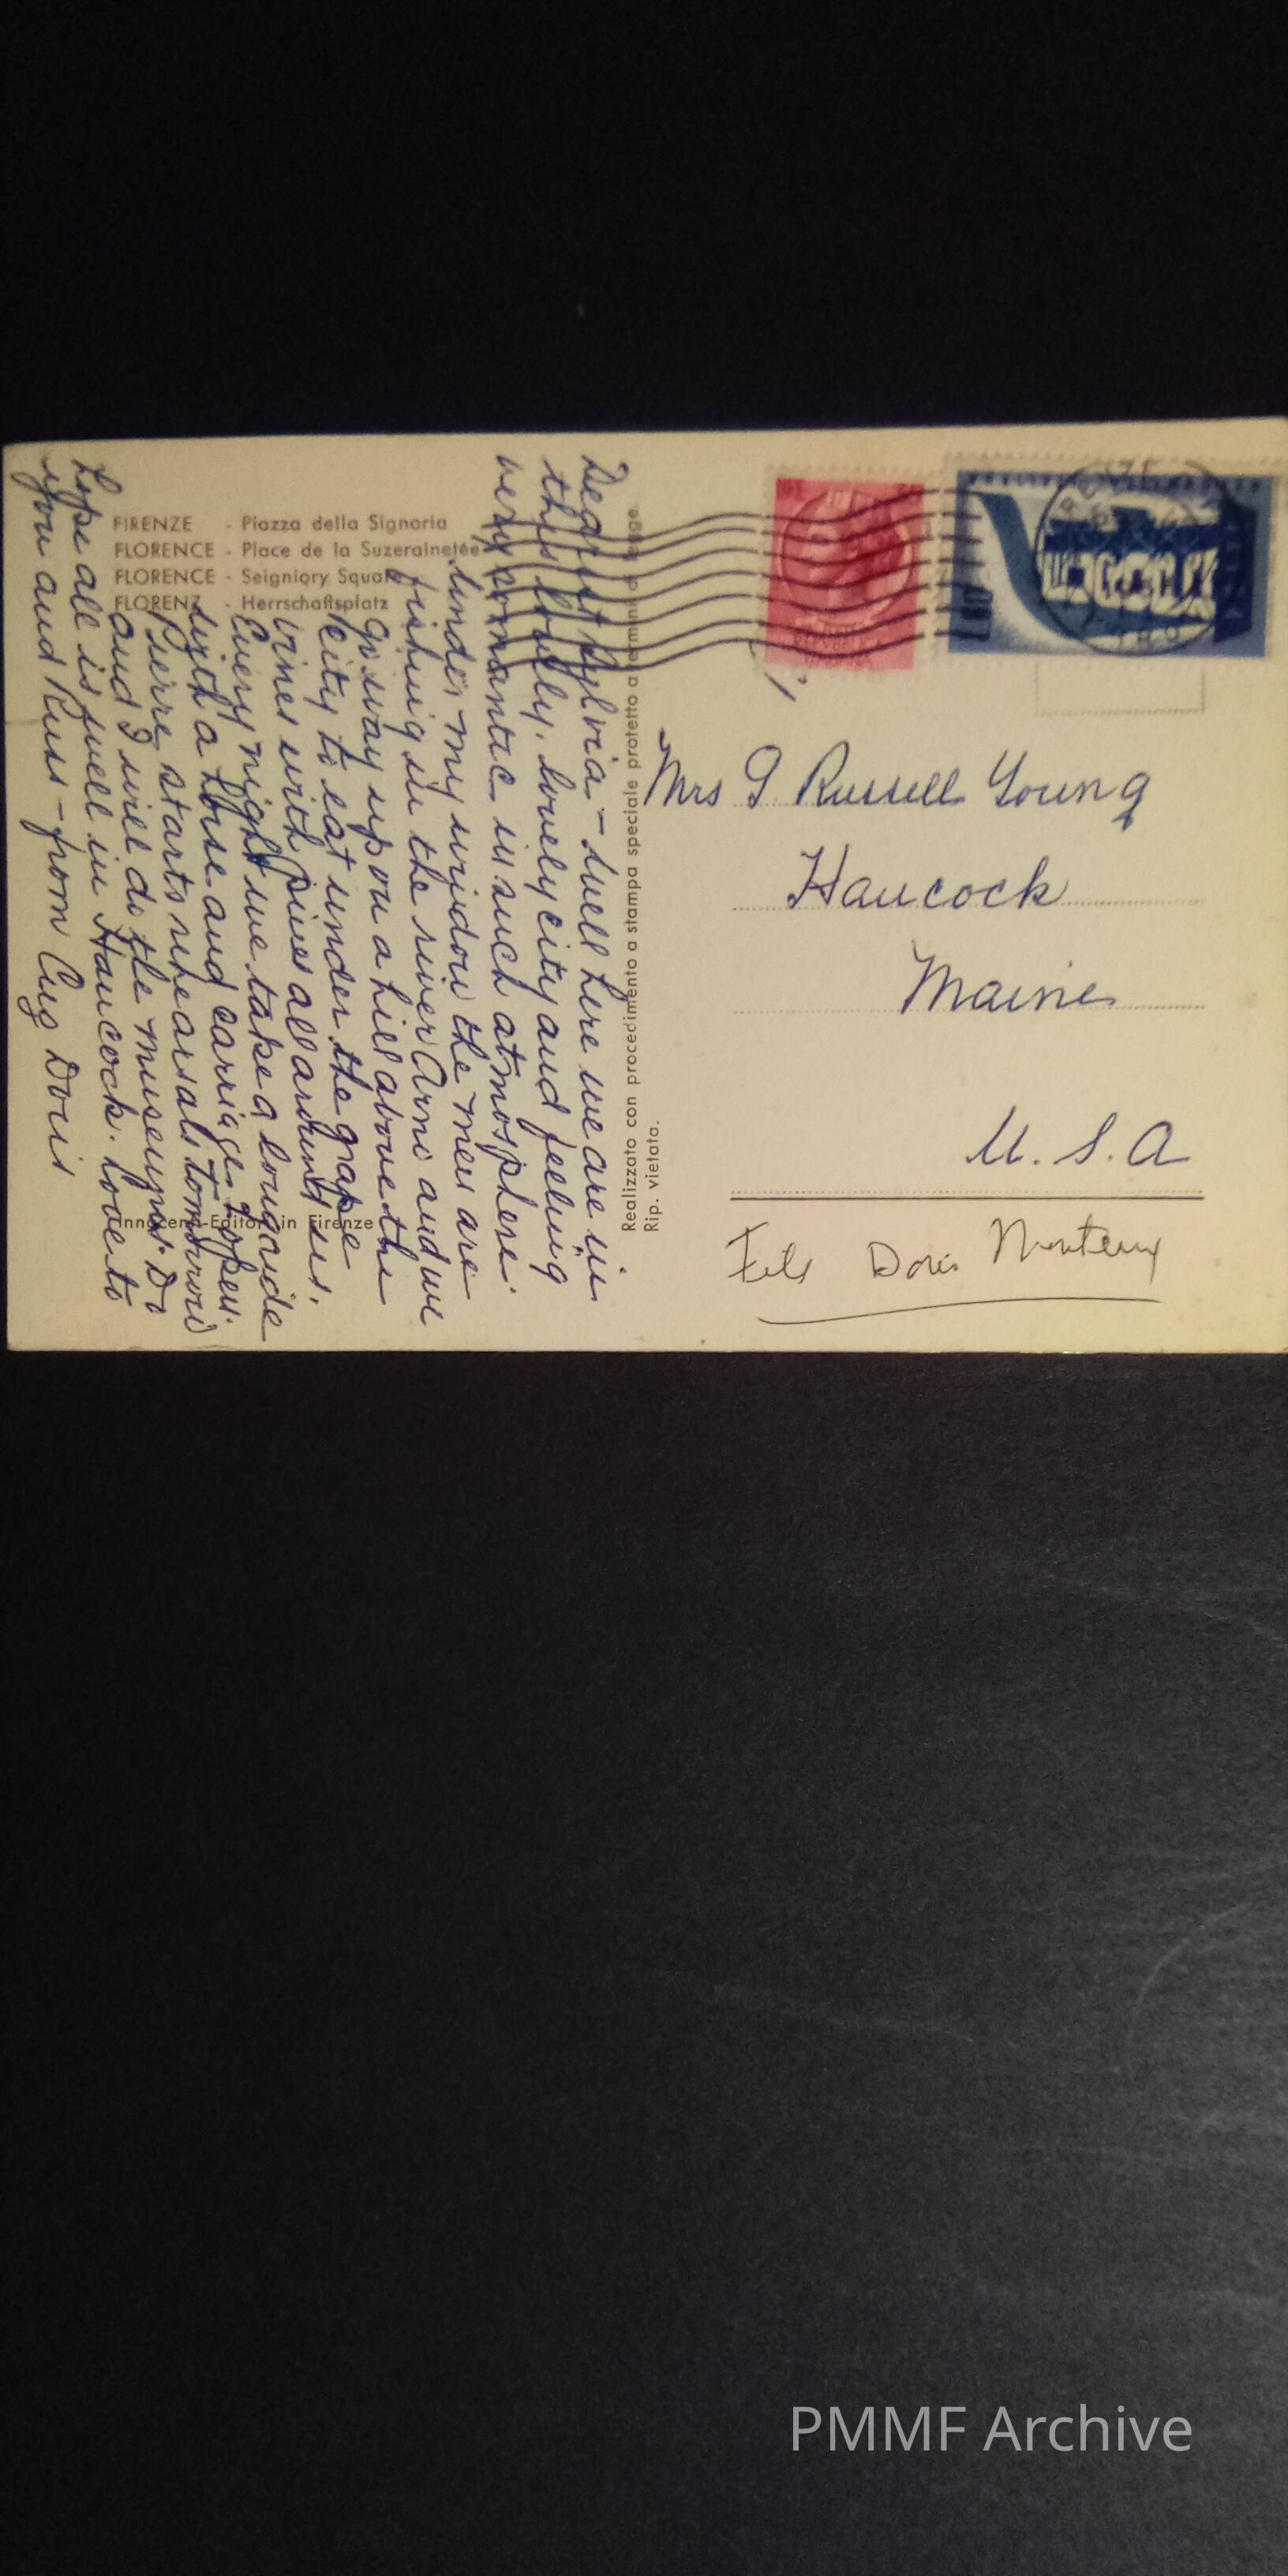 FIRENZE - Piazza della Signoria
FLORENCE - Place de la Suzerainetée
FLORENCE - Seigniory Square
FLORENZ - Herrschaftsplatz
Dearest Sylvia - Well here we are in
this lovely, lovely city and feeling
very romantic in such atmosphere
Under my window the men are
fishing in the river Arno and we
go way up on a hill above the
city to eat under the grape
vines with pines all around us.
Every night we take a long ride
with a horse and carriage, open.
Pierre starts rehearsals tomorrow
and I will do the museums. Do
hope all is well in Hancock. Love to
you and Russ - from Doris
Innocenti-Editori in Firenze
Realizzato con procedimento a stampa speciale protetto a termini di legge.
Rip. vietata.
Mrs G Russell Young
Hancock
Maine
U. S. A
Doris Monteux
PMMF Archive